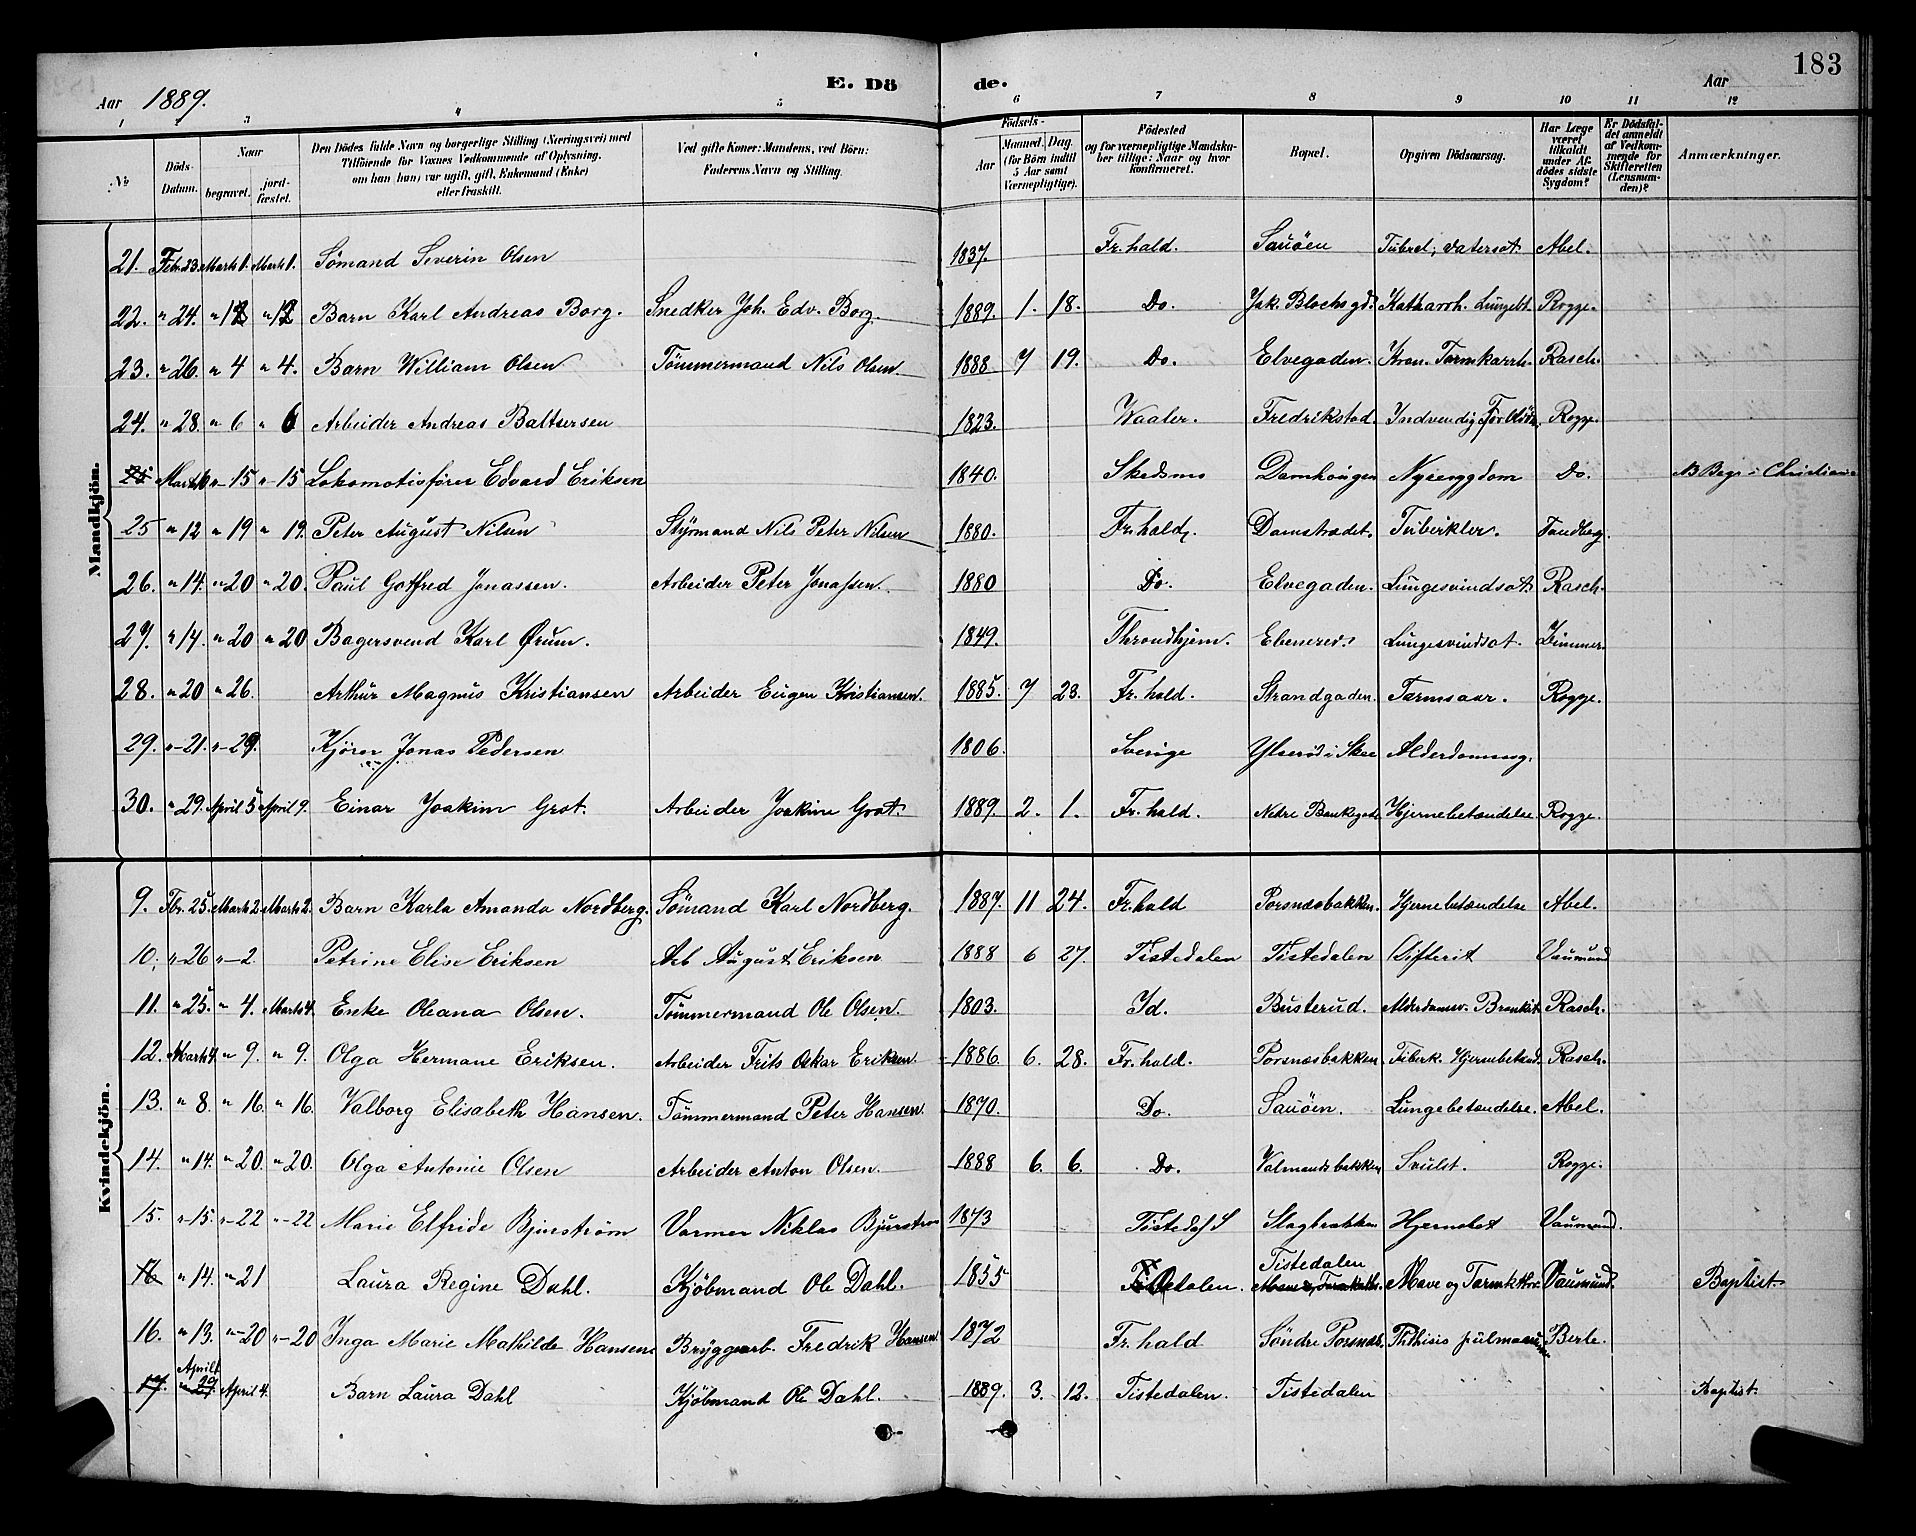 183
E. Döde.
Aar 1889.
Aar
1 2 3 4 5 6 7 8 9 10 11 12
No
Döds-Datum.
Naar
begravet.
jordfæstet.
Den Dödes fulde Navn og borgerlige Stilling (Næringsvei) med Tilföiende for Voxnes Vedkommende af Oplysning, om han (hun) var ugift, gift, Enkemand (Enke) eller fraskilt.
Ved gifte Koner: Mandens, ved Börn: Faderens Navn og Stilling.
Födsels-
Aar
Maaned. Dag.
(for Börn indtil 5 Aar samt Værnepligtige).
Födested og for værnepligtige Mandskaber tillige: Naar og hvor konfirmeret.
Bopæl.
Opgiven Dödsaarsag.
Har Læge været tilkaldt under Afdödes sidste Sygdom?
Er Dödsfaldet anmeldt af Vedkommende for Skifteretten (Lensmanden)?
Anmærkninger.
Mandkjön.
21. Febr. 23. Marts 1. Marts 1. Sömand Severin Olsen 1837. Fr.hald. Sauöen Abel.
22. " 24. " 12 " 12 Barn Karl Andreas Borg. Snedker Joh. Edv. Borg. 1889. 1. 18. Do. Jak. Blochsgd. Katharrh. Rogge.
23. " 26. " 4 " 4. Barn William Olsen Tömmermand Nils Olsen. 1888. 7 19. Do. Elvegaden. Kron. Tarmkarrh. Rasch.
24. " 28. " 6 " 6 Arbeider Andreas Baltsersen 1823. Waaler. Fredrikstad. Indvendig Rogge.
25 Marts " 15 " 15 Lokomotivförer Edvard Eriksen 1840. Skedsmo Damhougen Nyresygdom Do. NB Begr. i Christiania
25 " 12 " 19 " 19. Peter August Nilsen Styrmand Nils Peter Nilsen 1880. Fr.hald. Damstrædet. Tuberkler. Tandberg.
26. " 14. " 20 " 20. Paul Gotfred Jonassen. Arbeider Peter Jonassen. 1880 Do. Elvegaden. Lungesvindsot Rasch.
27. " 14. " 20 " 20 Bagersvend Karl Ørum. 1849. Throndhjem. Ebenezer. Lungesvindsot. Zimmer.
28. " 20 " 26. Arthur Magnus Kristiansen Arbeider Eugen Kristiansen. 1885. 7 23. Fr.hald. Strandgaden. Tarmsaar. Rogge.
29. " 21. " 29. Kjörer Jonas Pedersen 1806. Sverige i Skee Alderdomssvag.
30. " 29. April 5 April 9. Einar Joakim Grot. Arbeider Joakim Grot. 1889. 2. 1. Fr.hald. Nedre Bankegade Hjernebetændelse Rogge.
Kvindekjön.
9. Fbr. 25. Marts 2. Marts 2. Barn Karla Amanda Nordberg. Sömand Karl Nordberg. 1887. 11 24. Fr.hald Porsnæsbakken. Hjernebetændelse Abel.
10. " 26 " 2. Petrine Elise Eriksen Arb August Eriksen 1888 6 27. Tistedalen Tistedalen Difterit Vaumund
11. " 25. " 4. Marts 4. Enke Oleana Olsen. Tömmermand Ole Olsen. 1803. Id. Busterud. Alderdomsv. Bronkit. Rasch.
12. Marts 4. " 9. " 9. Olga Hermane Eriksen. Arbeider Frits Oskar Eriksen 1886. 6. 28. Fr.hald. Porsnæsbakken. Tuberk. Hjernebetænd. Rasch.
13. " 8. " 16. " 16. Valborg Elisabeth Hansen. Tömmermand Peter Hansen. 1870. Do. Sauöen. Lungebetændelse. Abel.
14. " 14. " 20. " 20. Olga Antonie Olsen Arbeider Anton Olsen. 1888 6. 6. Do. Valmandsbakken Svulst. Rogge.
15. " 15. " 22 " 22 Marie Elfride Bjurström Varmer Niklas Bjurström 1873 Slagbrakken Vaumund.
16 " 14. " 21 Laura Regine Dahl. Kjöbmand Ole Dahl. 1855 Tistedalen. Tistedalen Mave og Tarmk Vaumund. Baptist
16. " 13. " 20 " 20 Inga Marie Mathilde Hansen Bryggearb. Fredrik Hansen 1872 Fr.hald Söndre Porsnæs. Phthisis pulmonum Berle.
17. April 4. Barn Laura Dahl Kjöbmand Ole Dahl. 1889. 3. 12. Tistedalen. Tistedalen Baptist